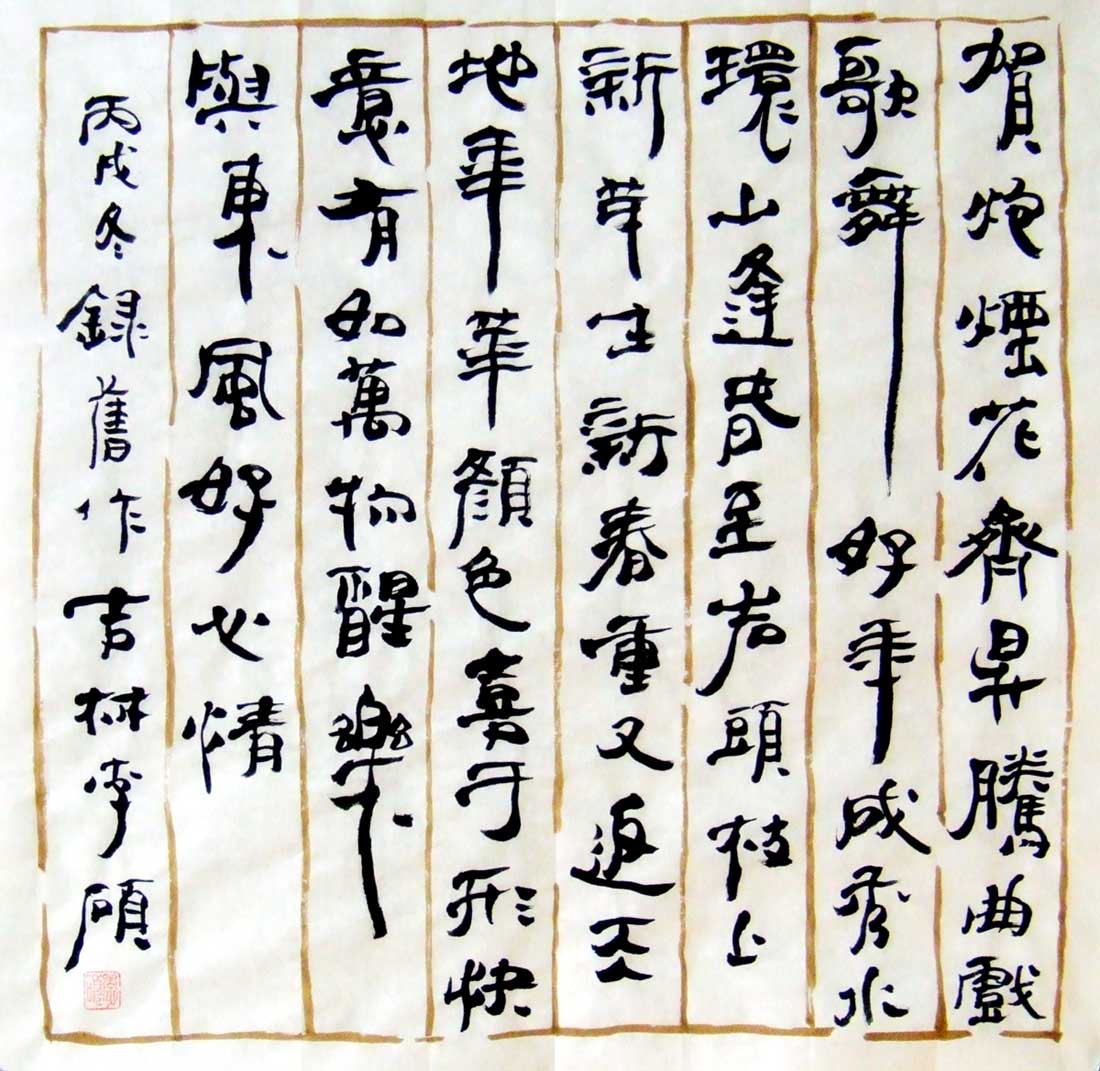 賀炮煙花齊昇騰曲戲
歌舞好年成秀水
環山逢春至岩頭枝上
新芽生新春重又返天
地年華顏色喜于形快
意有如萬物醒樂
與東風好心情
丙戌冬錄舊作吉林李碩